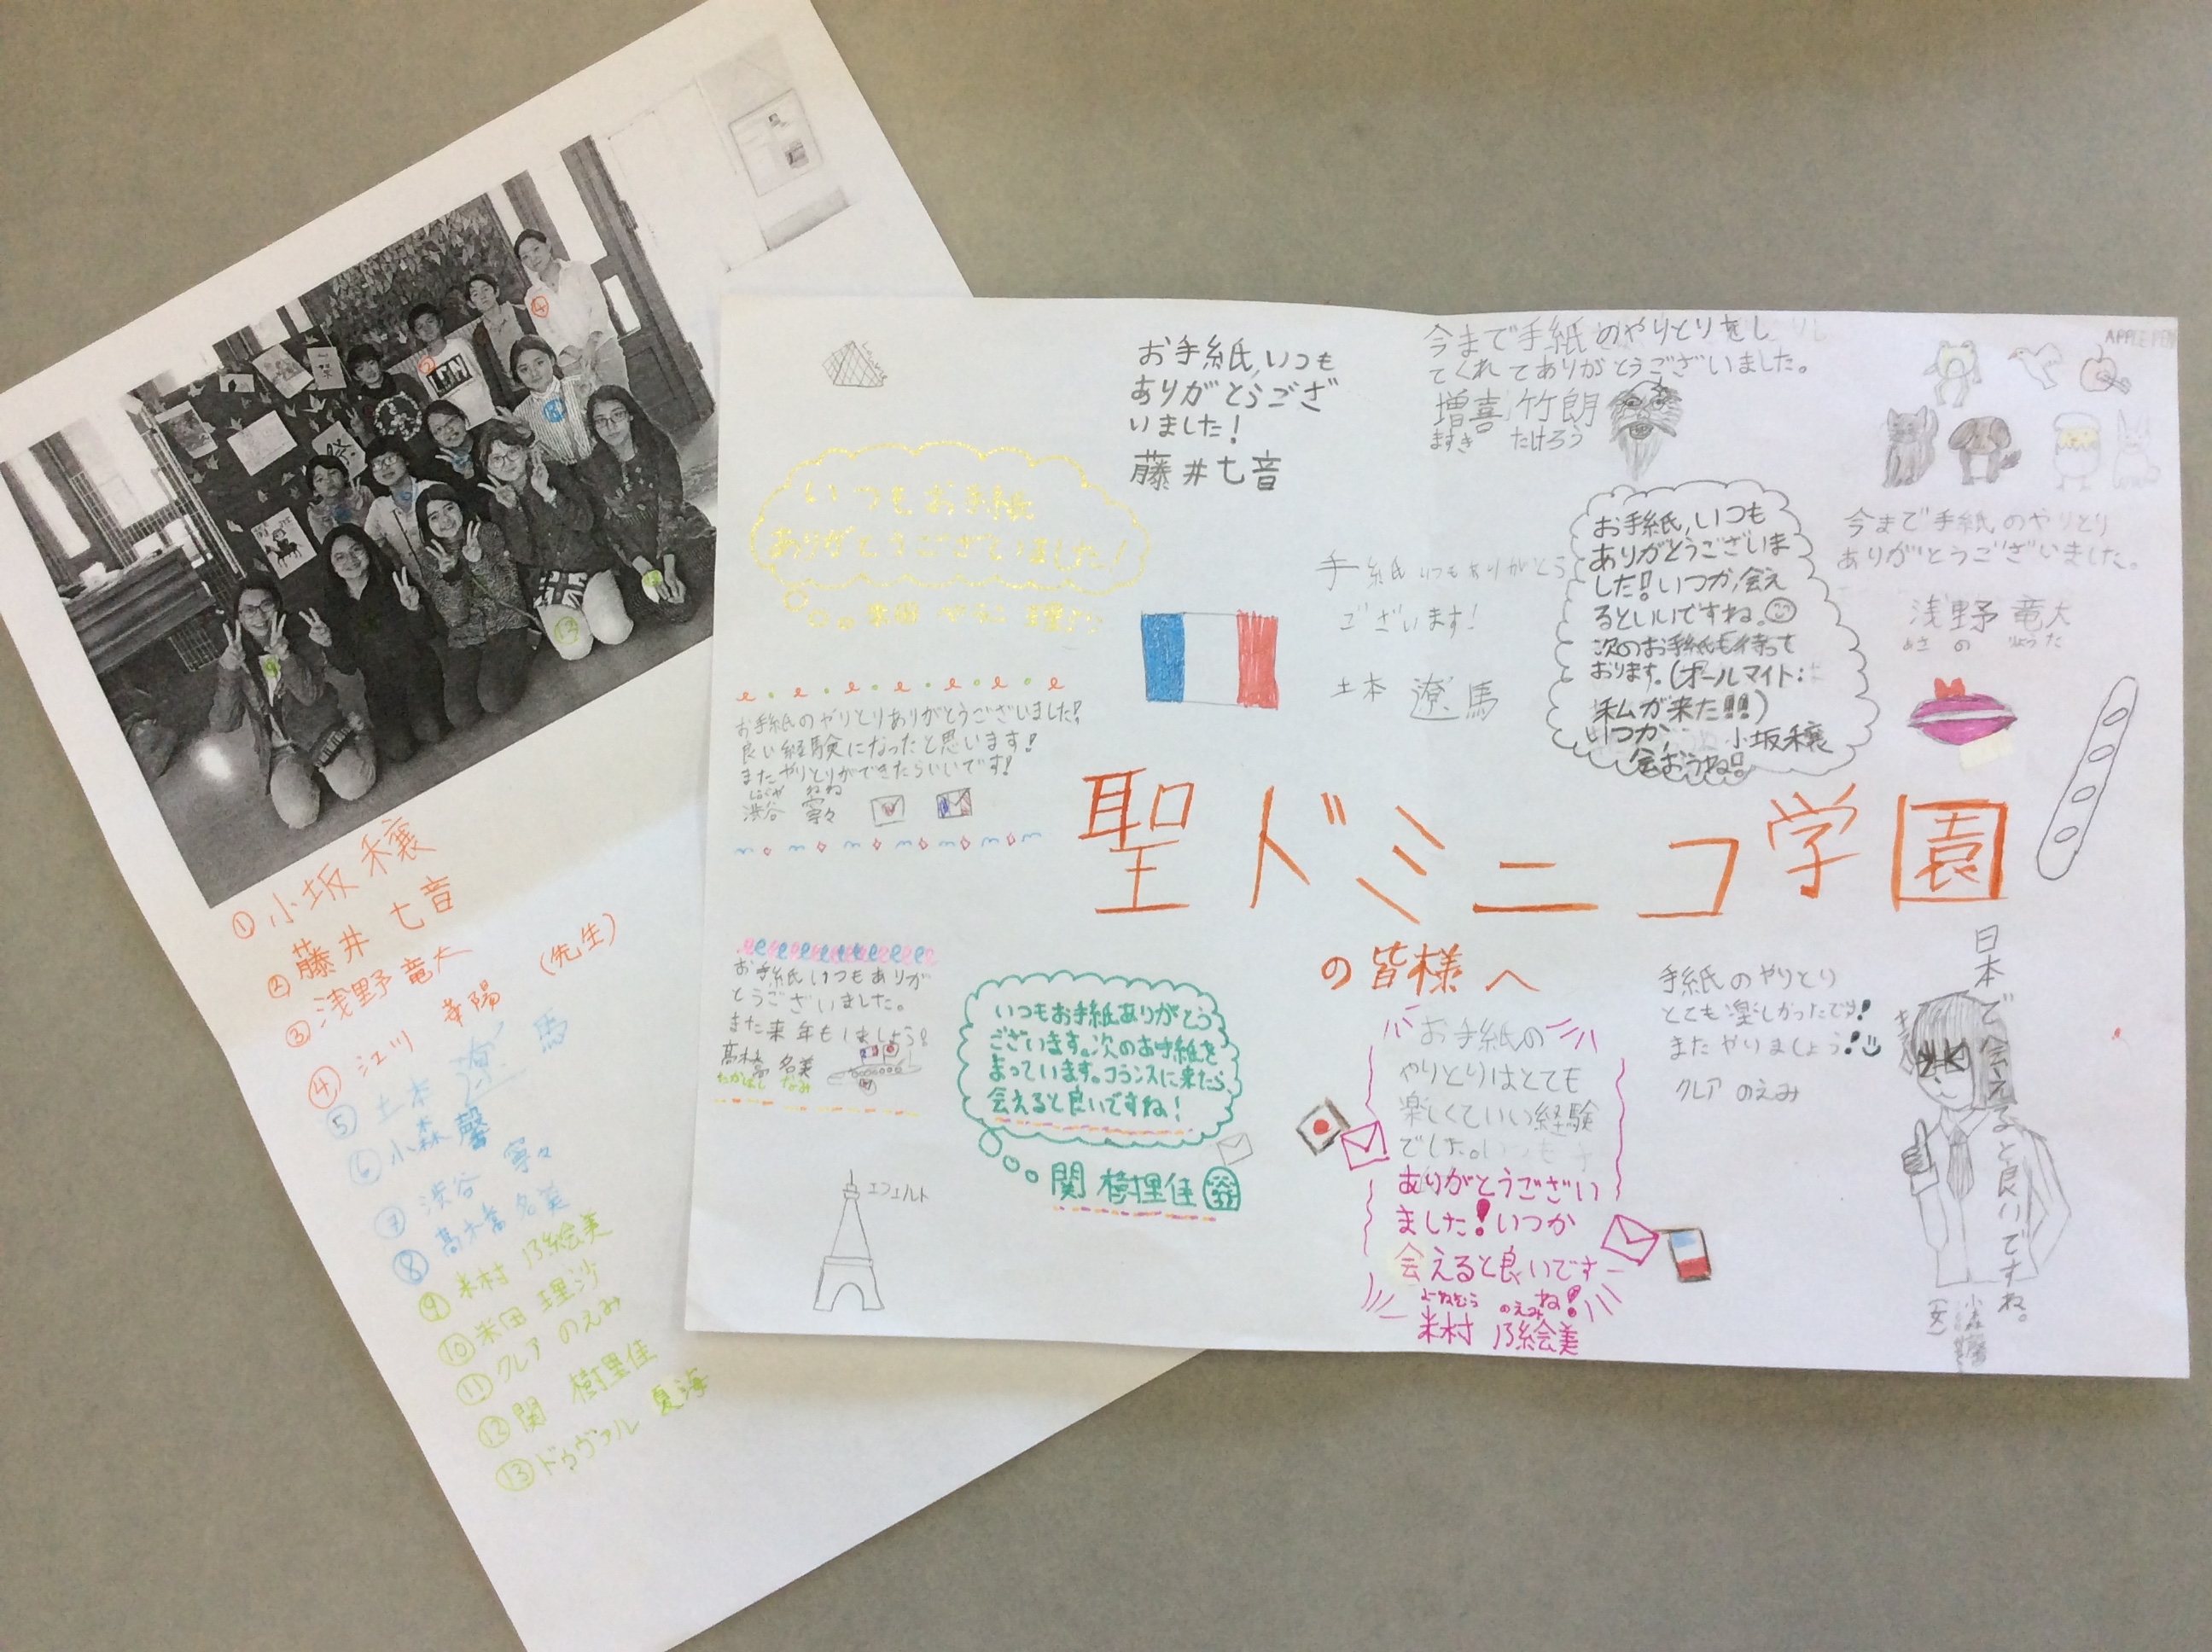 ① 小坂 穣
② 藤井 七音
③ 浅野 竜大
④ 江川 幸陽 (先生)
⑤ 土本 遼馬
⑥ 小森 馨
⑦ 渋谷 寧々
⑧ 髙橋 名美
⑨ 米村 乃絵美
⑩ 米田 理沙
⑪ クレア のえみ
⑫ 関 樹里佳
⑬ ドゥヴァル 夏海
お手紙いつも
ありがとうござ
いました!
藤井七音
今まで手紙のやりとりをし
てくれてありがとうございました。
増喜 竹朗
ますき たけろう
APPLE PEN
いつもお手紙
ありがとうございました!
米田
手紙いつもありがとう
ございます!
土本 遼馬
お手紙、いつも
ありがとうございま
した!いつか会え
るといいですね。
次のお手紙も待って
おります。(オールマイト:
私が来た!!)
いつか、 小坂穣
会おうね!
今まで手紙のやりとり
ありがとうございました。
浅野 竜大
あさの りゅうた
お手紙のやりとりありがとうございました!
良い経験になったと思います!
またやりとりができたらいいです!
しぶや ねね
渋谷 寧々
聖ドミニコ学園
の皆様へ
お手紙いつもありが
とうございました。
また来年もしましょう!
髙橋 名美
たかはし なみ
いつもお手紙ありがとう
ございます。次のお手紙を
まっています。フランスに来たら、
会えると良いですね!
関 樹里佳
エフェルト
お手紙の
やりとりはとても
楽しくていい経験
でした。
ありがとうござい
ました!いつか
会えると良いです
ね!
よねむら のえみ
米村 乃絵美
手紙のやりとり
とても楽しかったです!
またやりましょう!
クレア のえみ
日本で会えると良いですね。
小森馨
(女)